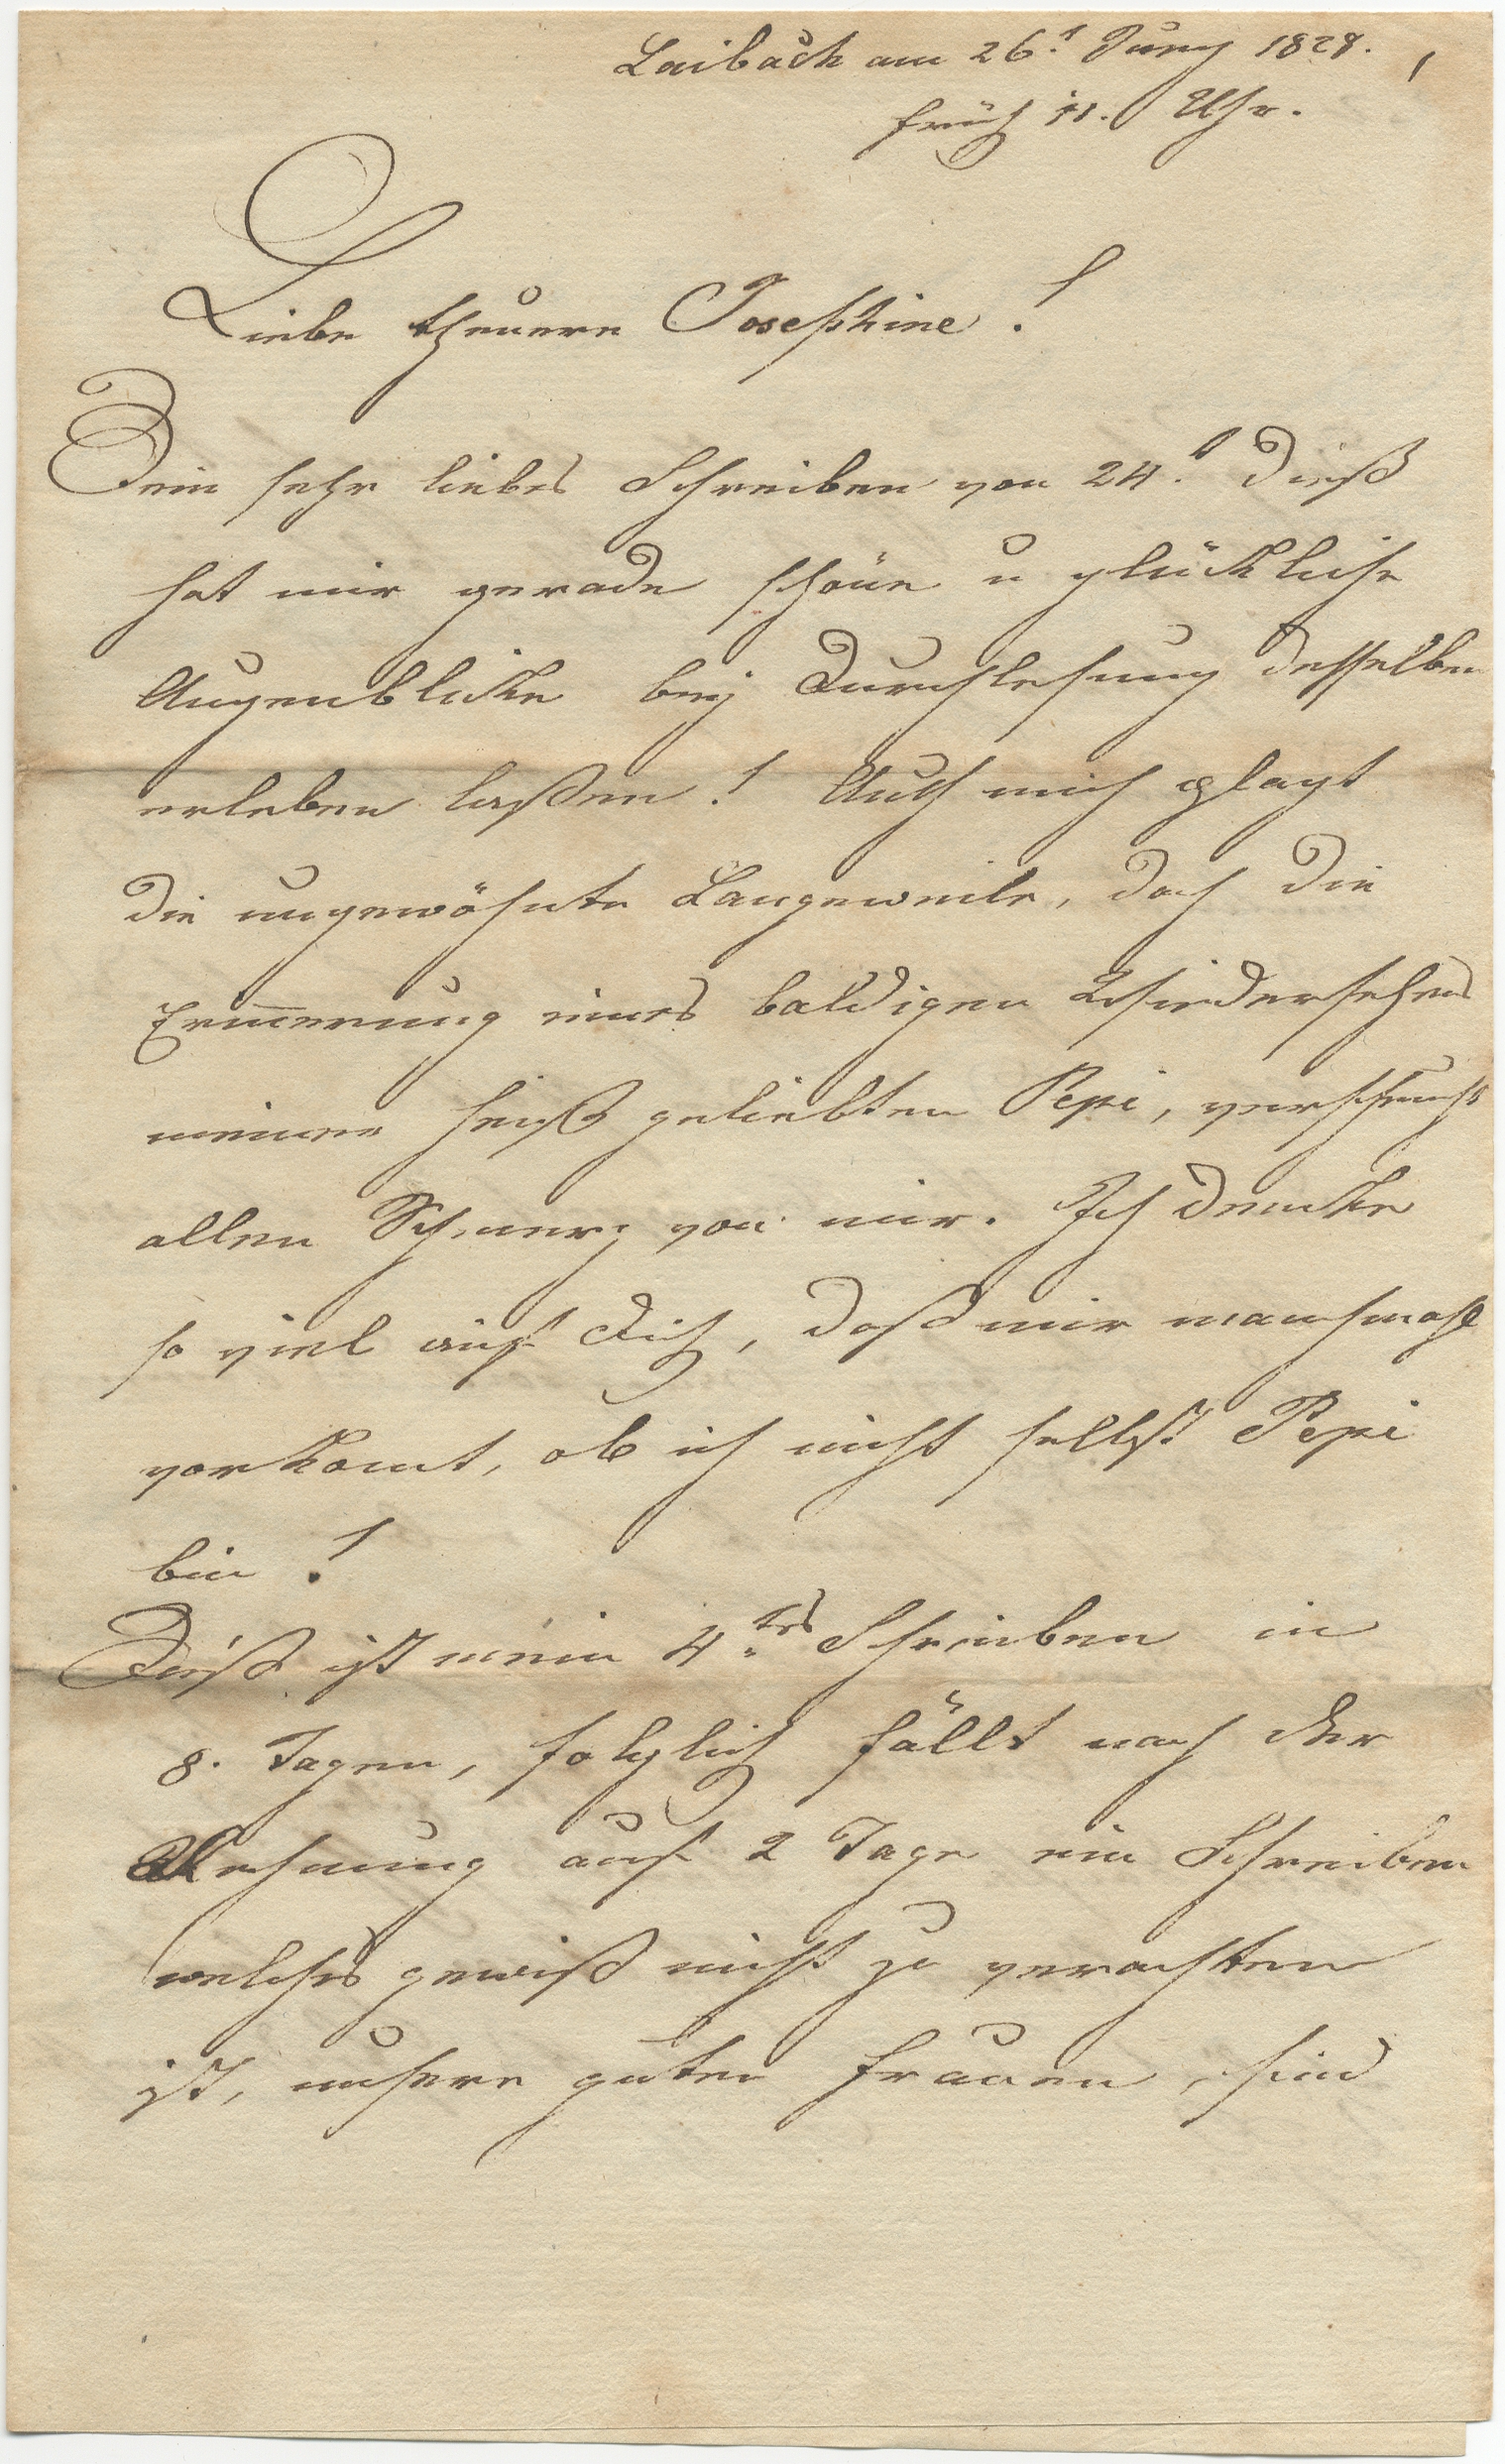 Laibach am 26.t Juny 1828.
früh 11. Uhr.
Liebe theuere Josephine!
Dein sehr liebes Schreiben von 24.t dieß
hat mir gerade schöne u glückliche
Augenblicke bey Durchlesung desselben
erleben laßen! Auch mich plagt
die ungewöhnte Langeweile, doch die
Erinnerung eines baldigen Wiedersehens
meiner heiß geliebten Pepi, verscheucht
allen Schmerz von mir. Ich denke
so viel auf Dich, daß mir manchmahl
vorkomt, ob ich nicht selbst Pepi
bin!
Dieß ist mein 4.tes Schreiben in
8. Tagen, folglich fällt nach der
Rechnung auf 2 Tage ein Schreiben
welches gewiß nicht zu verachten
ist, unsere guten Frauen, sind